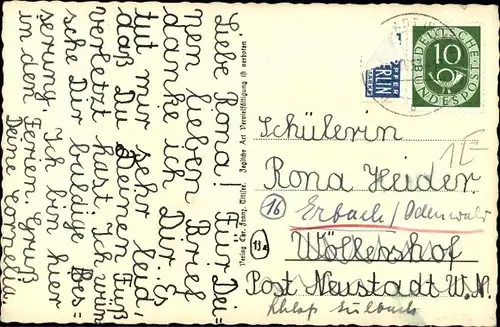 Liebe Rona! Für Dei=
nen lieben Brief
danke ich Dir. Es
tut mir sehr leid,
daß Du Deinen Fuß
verletzt hast. Ich wün=
sche Dir baldige Bes=
serung. Ich bin hier
in den Ferien. Gruß
Deine Cornelia.
Verlag Chr. Franz, Jegliche Art Vervielfältigung ist verboten
NOTOPFER
BERLIN
STEUERMARKE
DEUTSCHE
BUNDESPOST
10
Schülerin
Rona Heider
16 Erbach/Odenwald
13a
Wöllershof
Post Neustadt W.N.